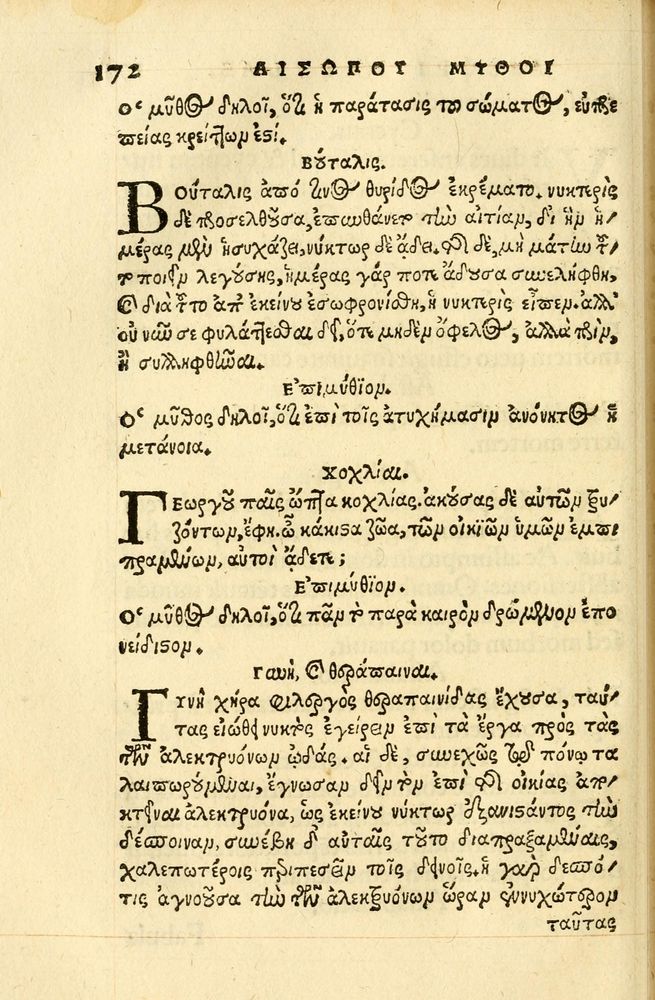 172 ΑΙΣΩΠΟΥ ΜΥΘΟΙ
Ὁ μῦθος δηλοῖ, ὅτι ἡ παράτασις τοῦ σώματος, εὐπρε
πείας κρείττων ἐστί.
Βούταλις.
ΒΟύταλις ἀπό τινος θυρίδος ἐκρέματο. νυκτερὶς
δὲ προσελθοῦσα, ἐπυνθάνετο τὴν αἰτίαν, δι' ἣν ἡ/
μέρας μὲν ἡσυχάζει, νύκτωρ δὲ ᾄδει. τῆς δὲ, μὴ μάτην τοῦ/
το ποιεῖν λεγούσης, ἡμέρας γάρ ποτε ᾄδουσα συνελήφθη,
καὶ διὰ τοῦτο ἀπ' ἐκείνου ἐσωφρονίσθη, ἡ νυκτερὶς εἶπεν. ἀλλ'
οὐ νῦν σε φυλάττεσθαι δεῖ, ὅτε μηδὲν ὄφελος, ἀλλὰ πρὶν,
ἢ συλληφθῆναι.
Ἐπιμύθιον.
Ὁ μῦθος δηλοῖ, ὅτι ἐπὶ τοῖς ἀτυχήμασιν ἀνόνητος ἡ
μετάνοια.
Κοχλίαι.
ΓΕωργοῦ παῖς ὤπτα κοχλίας. ἀκούσας δὲ αὐτῶν τρυ/
ζόντων, ἔφη. ὦ κάκιστα ζῶα, τῶν οἰκιῶν ὑμῶν ἐμπι
πραμένων, αὐτοὶ ᾄδετε;
Ἐπιμύθιον.
Ὁ μῦθος δηλοῖ, ὅτι πᾶν τὸ παρὰ καιρὸν δρώμενον ἐπο
νείδιστον.
Γυνὴ, καὶ θεράπαιναι.
ΓΥνὴ χήρα φιλεργὸς θεραπαινίδας ἔχουσα, ταύ/
τας εἰώθει νυκτὸς ἐγείρειν ἐπὶ τὰ ἔργα πρὸς τὰς
τῶν ἀλεκτρυόνων ᾠδάς. αἱ δὲ, συνεχῶς τῷ πόνῳ τα
λαιπωρούμεναι, ἔγνωσαν δεῖν τὸν ἐπὶ τῆς οἰκίας ἀπο
κτεῖναι ἀλεκτρυόνα, ὡς ἐκείνου νύκτωρ ἐξανιστάντος τὴν
δέσποιναν, συνέβη δ' αὐταῖς τοῦτο διαπραξαμέναις,
χαλεπωτέροις περιπεσεῖν τοῖς δεινοῖς. ἡ γὰρ δεσπό/
τις ἀγνοοῦσα τὴν τῶν ἀλεκτρυόνων ὥραν ἐννυχώτερον
ταύτας